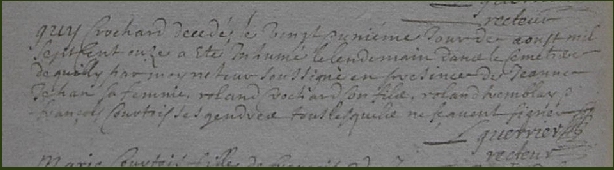 recteur
guy rochard decedé le vingt uniéme jour de aoust mil
sept cent onze a ete inhumé le lendemain dans le semetiere
de quilly par moy recteur soussigné en presence de Jeanne
sa femme, roland rochard son fils, roland hemblay
françois Courtois ses gendres tous lesquels ne scavent signer
guerrier
recteur
Marie Courtois fille de